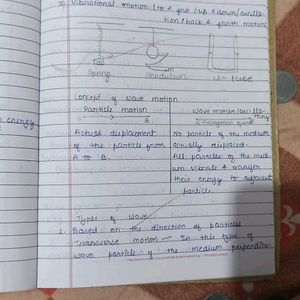 3) Vibrational motion (to & fro / up & down / oscilla
tion / back & forth motion)
Spring
Pendulum
U-tube
Concept of wave motion
Particle motion
wave motion / oscilla-
tory
A
B
Actual displacement
of the particle from
A to B.
No particle of the medium
actually displaced.
All particles of the medi-
um vibrate & transfer
their energy to adjacent
particle.
energy
Types of Wave
1. Based on the direction of particles
Transverse motion - In this type of
wave particle of the medium perpendicu-